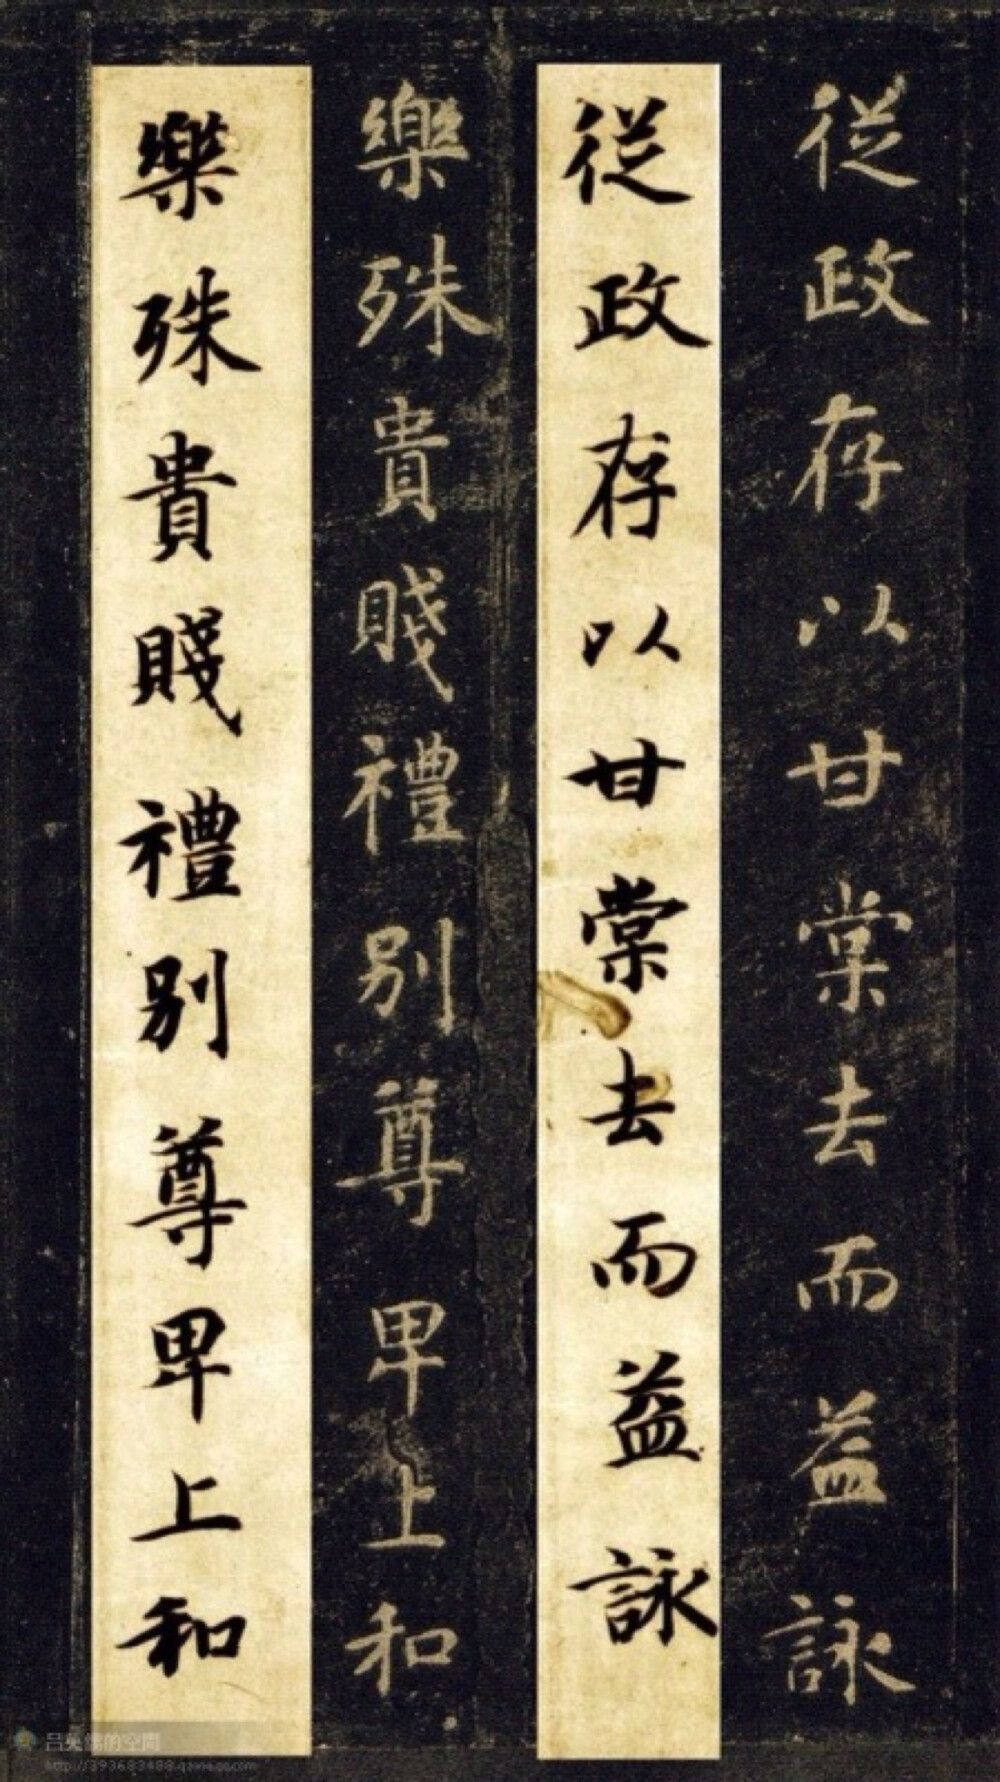 從政存以甘棠去而益詠
從政存以甘棠去而益詠
樂殊貴賤禮別尊卑上和
樂殊貴賤禮別尊卑上和
的空間